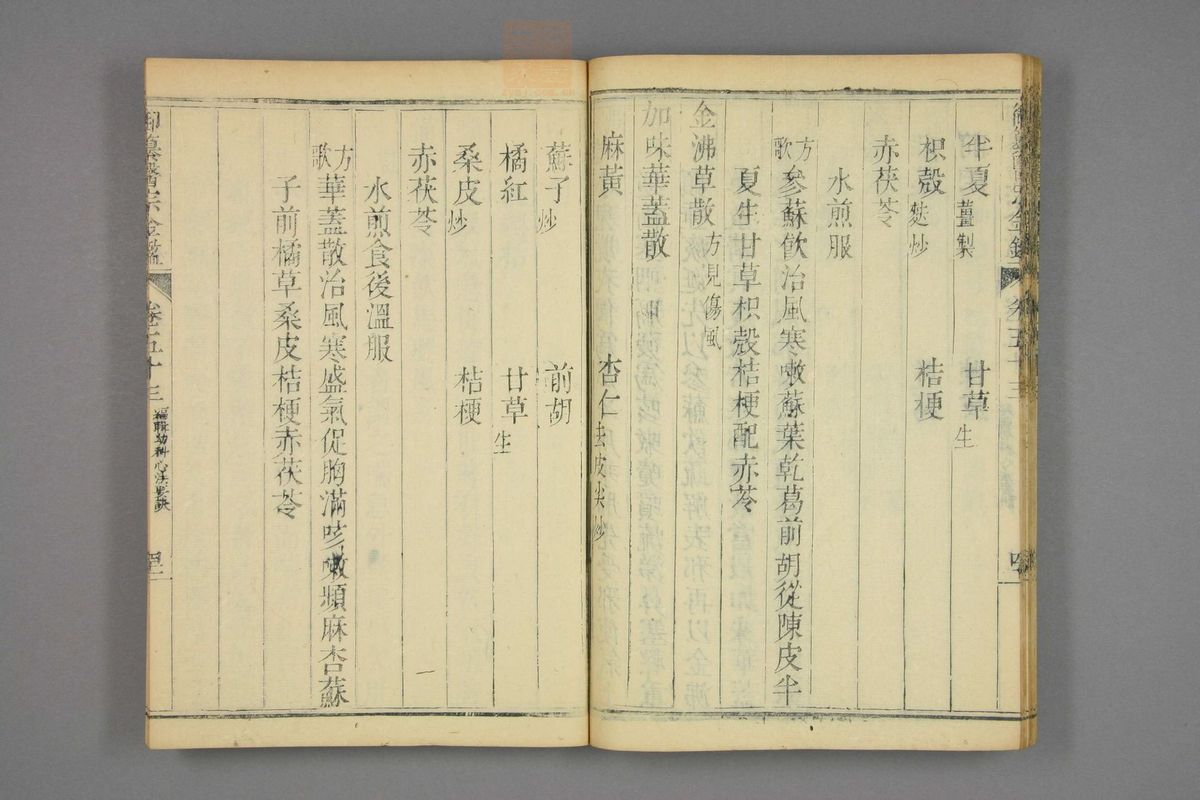 半夏薑製 甘草生
枳殼麩炒 桔梗
赤茯苓
水煎服
方歌 參蘇飲治風寒嗽蘇葉乾葛前胡從陳皮半
夏生甘草枳殼桔梗配赤苓
金沸草散方見傷風
加味華蓋散
麻黃 杏仁去皮尖炒
蘇子炒 前胡
橘紅 甘草生
桑皮炒 桔梗
赤茯苓
水煎食後溫服
方歌 華蓋散治風寒盛氣促胸滿咳嗽頻麻杏蘇
子前橘草桑皮桔梗赤茯苓
御纂醫宗金鑑 卷五十三 編輯幼科心法要訣